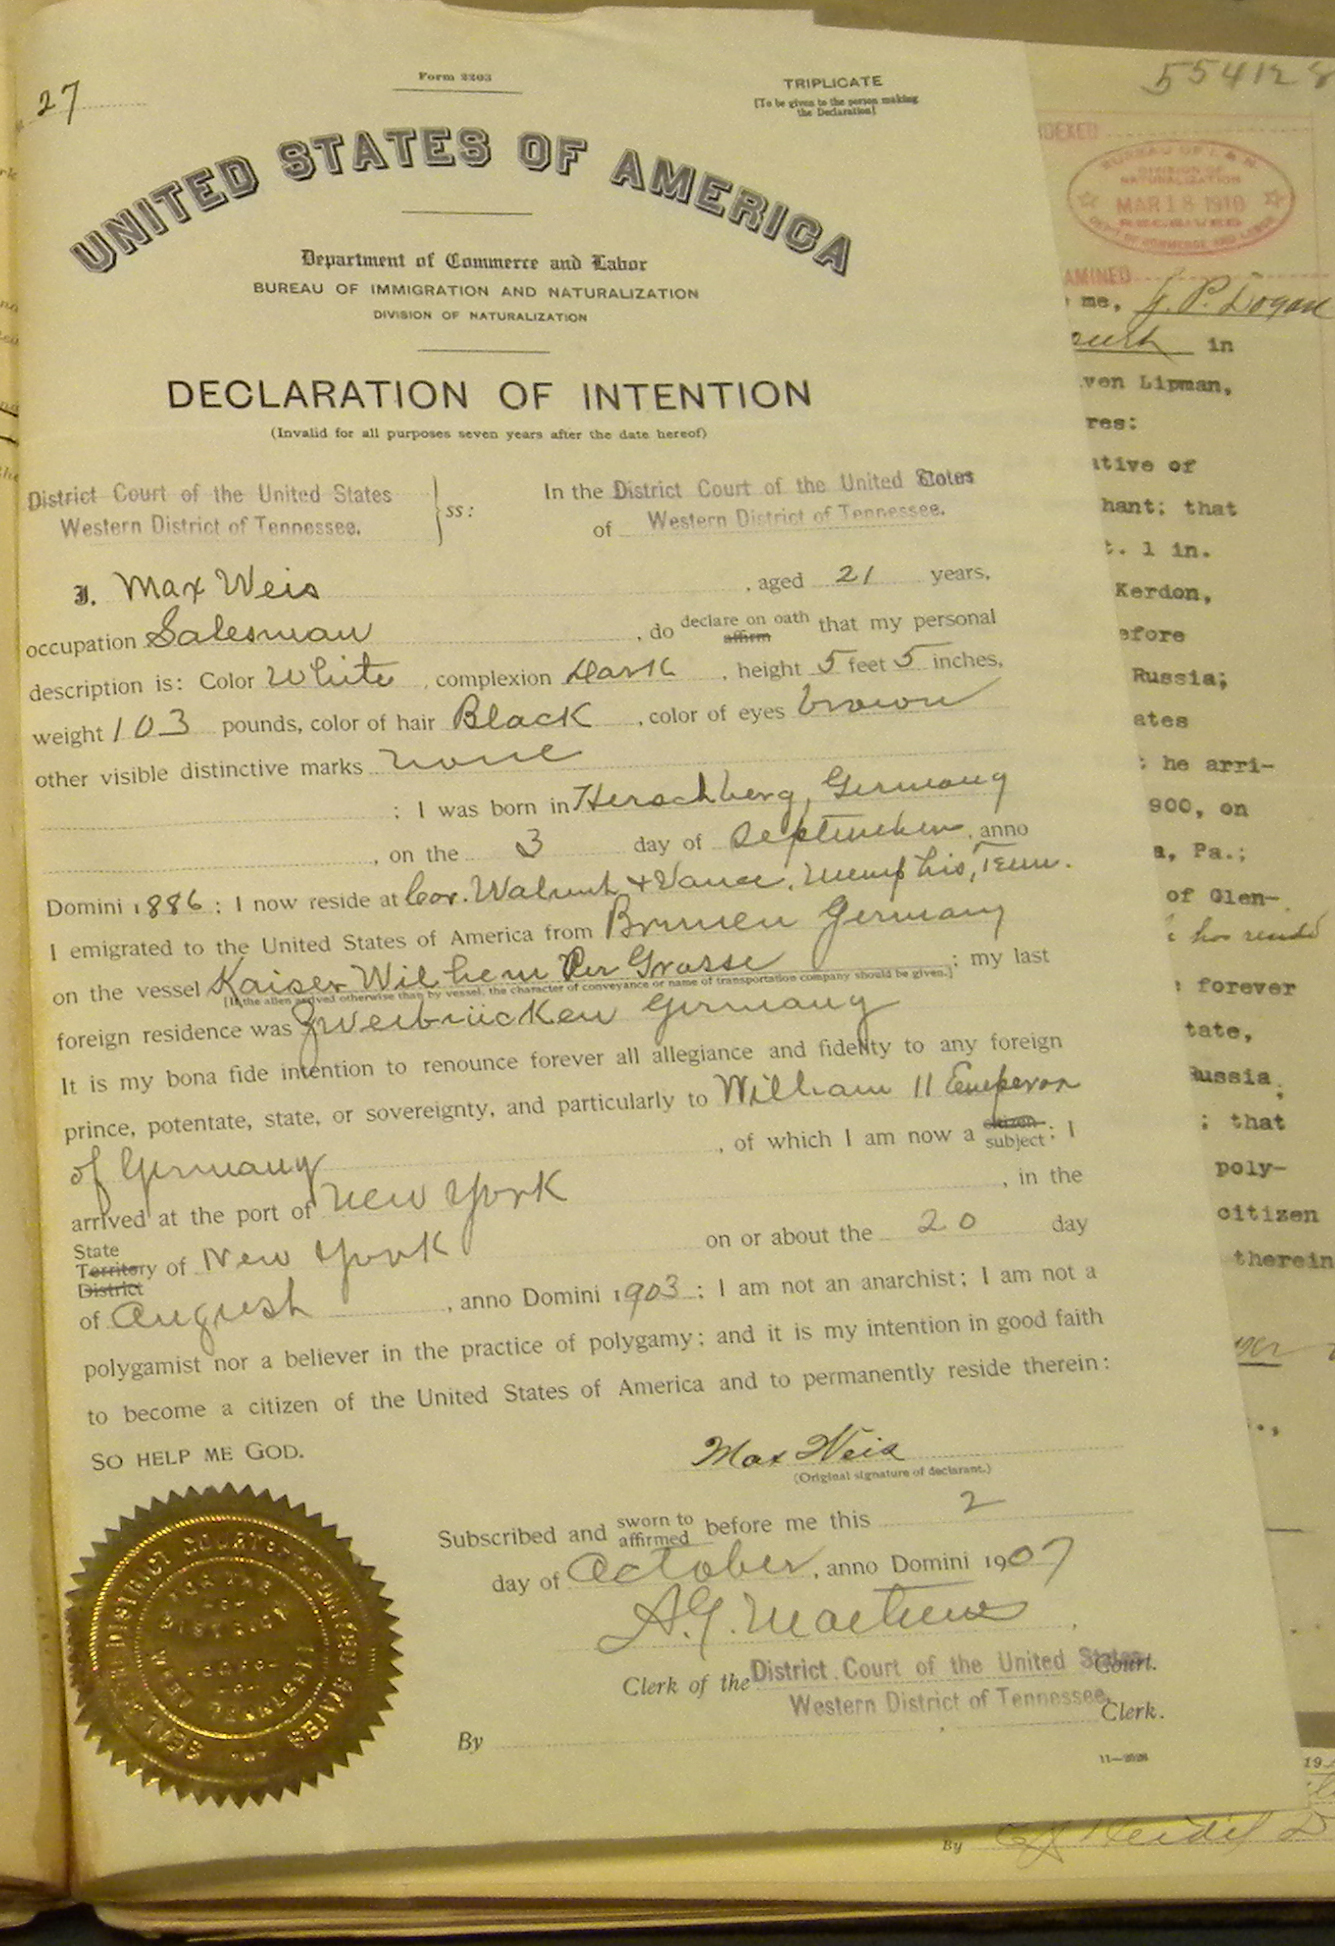 27
Form 2203
TRIPLICATE
[To be given to the person making
the Declaration]
UNITED STATES OF AMERICA
Department of Commerce and Labor
BUREAU OF IMMIGRATION AND NATURALIZATION
DIVISION OF NATURALIZATION
DECLARATION OF INTENTION
(Invalid for all purposes seven years after the date hereof)
District Court of the United States
Western District of Tennessee.
ss:
In the District Court of the United States
of Western District of Tennessee.
I, Max Weis, aged 21 years,
occupation Salesman, do declare on oath affirm that my personal
description is: Color White, complexion Dark, height 5 feet 5 inches,
weight 103 pounds, color of hair Black, color of eyes brown
other visible distinctive marks none
; I was born in Herschberg, Germany
, on the 3 day of September, anno
Domini 1886; I now reside at Cor. Walnut + Vance, Memphis, Tenn.
I emigrated to the United States of America from Bremen Germany
on the vessel Kaiser Wilhem Der Grosse; my last
[If the alien arrived otherwise than by vessel, the character of conveyance or name of transportation company should be given.]
foreign residence was Zweibrücken Germany
It is my bona fide intention to renounce forever all allegiance and fidelity to any foreign
prince, potentate, state, or sovereignty, and particularly to William II Emperor
of Germany, of which I am now a citizen subject; I
arrived at the port of New York, in the
State Territory District of New York on or about the 20 day
of August, anno Domini 1903; I am not an anarchist; I am not a
polygamist nor a believer in the practice of polygamy; and it is my intention in good faith
to become a citizen of the United States of America and to permanently reside therein:
SO HELP ME GOD.
Max Weis
(Original signature of declarant.)
Subscribed and sworn to affirmed before me this 2
day of October, anno Domini 1907
Clerk of the District Court of the United States Court.
Western District of Tennessee. Clerk.
By
11—2028
554128
INDEXED
BUREAU OF I. & N.
DIVISION OF
NATURALIZATION
MAR 18 1910
RECEIVED
DEPT OF COMMERCE AND LABOR
AMINED
me, J. P. Dogan
in
ven Lipman,
res:
ative of
hant; that
t. 1 in.
Kerdon,
efore
Russia;
ates
; he arri-
900, on
a, Pa.;
of Glen-
forever
tate,
Russia
; that
poly-
citizen
therein
19
By